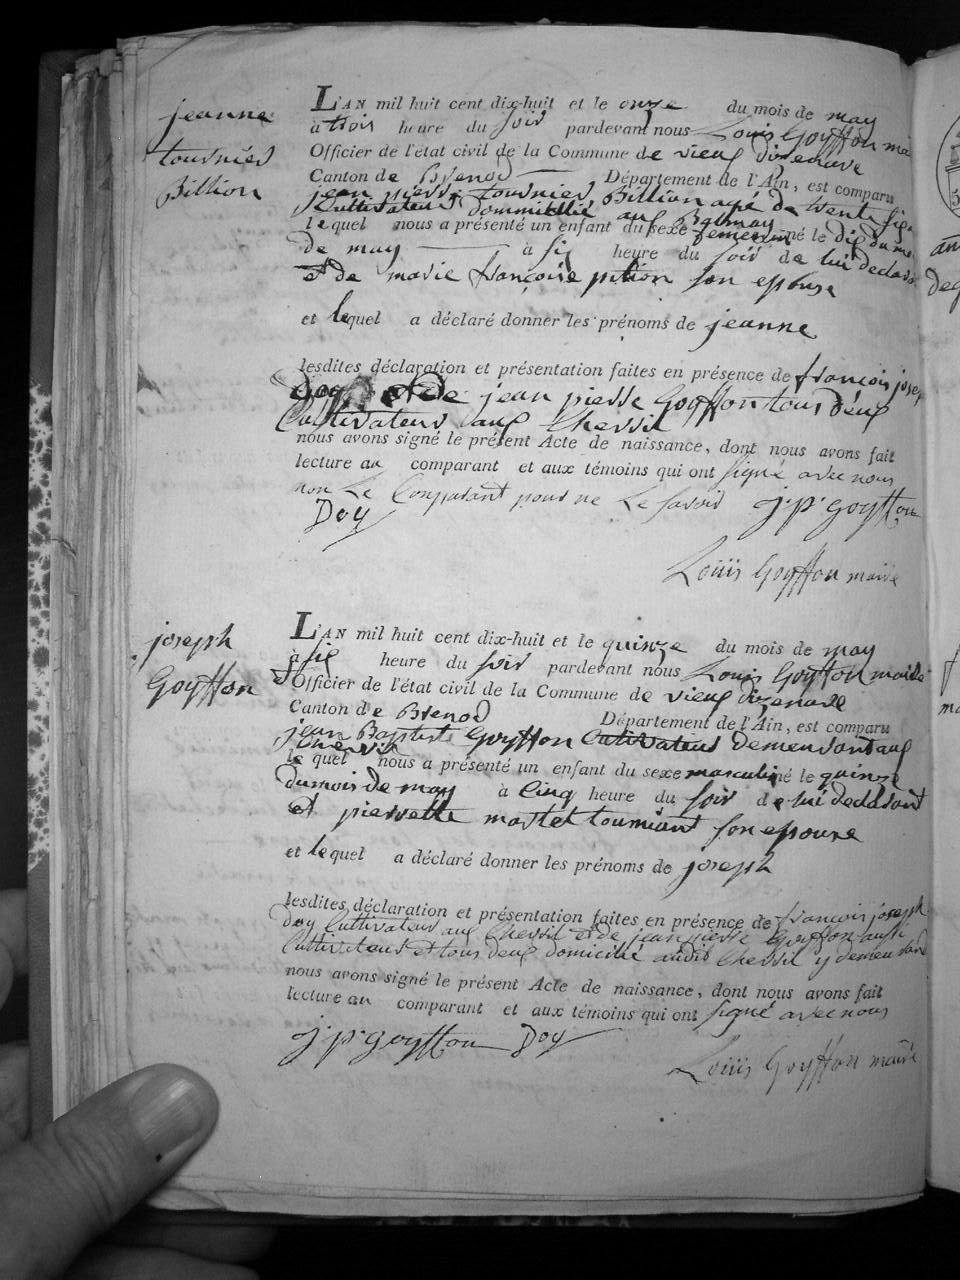 jeanne
tournier
Billion
L'AN mil huit cent dix-huit et le onze du mois de may
à trois heure du soir pardevant nous Louis Goyffon mai
Officier de l'état civil de la Commune de vieux dizenave
Canton de Brenod Département de l'Ain, est comparu
jean pierre tournier Billion agé de trente six
Cultivateur dommicillié aux Balmay
lequel nous a présenté un enfant du sexe femenin né le dix du mo
de may à six heure du soir de lui declara
et de marie françoise pition son epouse
et lequel a déclaré donner les prénoms de jeanne
lesdites déclaration et présentation faites en présence de françois josep
Doy et de jean pierre Goyffon tous deux
Cultivateurs aux Chevril
nous avons signé le présent Acte de naissance, dont nous avons fait
lecture au comparant et aux témoins qui ont signé avec nous
non Le Comparant pour ne Le savoir j. p. goyffon
Doy
Loüis Goyffon maire
joseph
Goyffon
L'AN mil huit cent dix-huit et le quinze du mois de may
à six heure du soir pardevant nous Louis Goyffon maire
Officier de l'état civil de la Commune de vieux dizenave
Canton de Brenod Département de l'Ain, est comparu
jean Baptiste Goyffon Cultivateur demeurant aux
Chevril
le quel nous a présenté un enfant du sexe masculin né le quinze
du mois de may à cinq heure du soir de lui declarant
et pierrette martet tourniant son epouse
et lequel a déclaré donner les prénoms de joseph
lesdites déclaration et présentation faites en présence de françois joseph
Doy Cultivateur aux Chevril et de jean pierre Goyffon aussi
Cultivateur et tous deux domicilié audit Chevril y demeurant
nous avons signé le présent Acte de naissance, dont nous avons fait
lecture au comparant et aux témoins qui ont signé avec nous
j. p. goyffon Doy
Loüis Goyffon maire